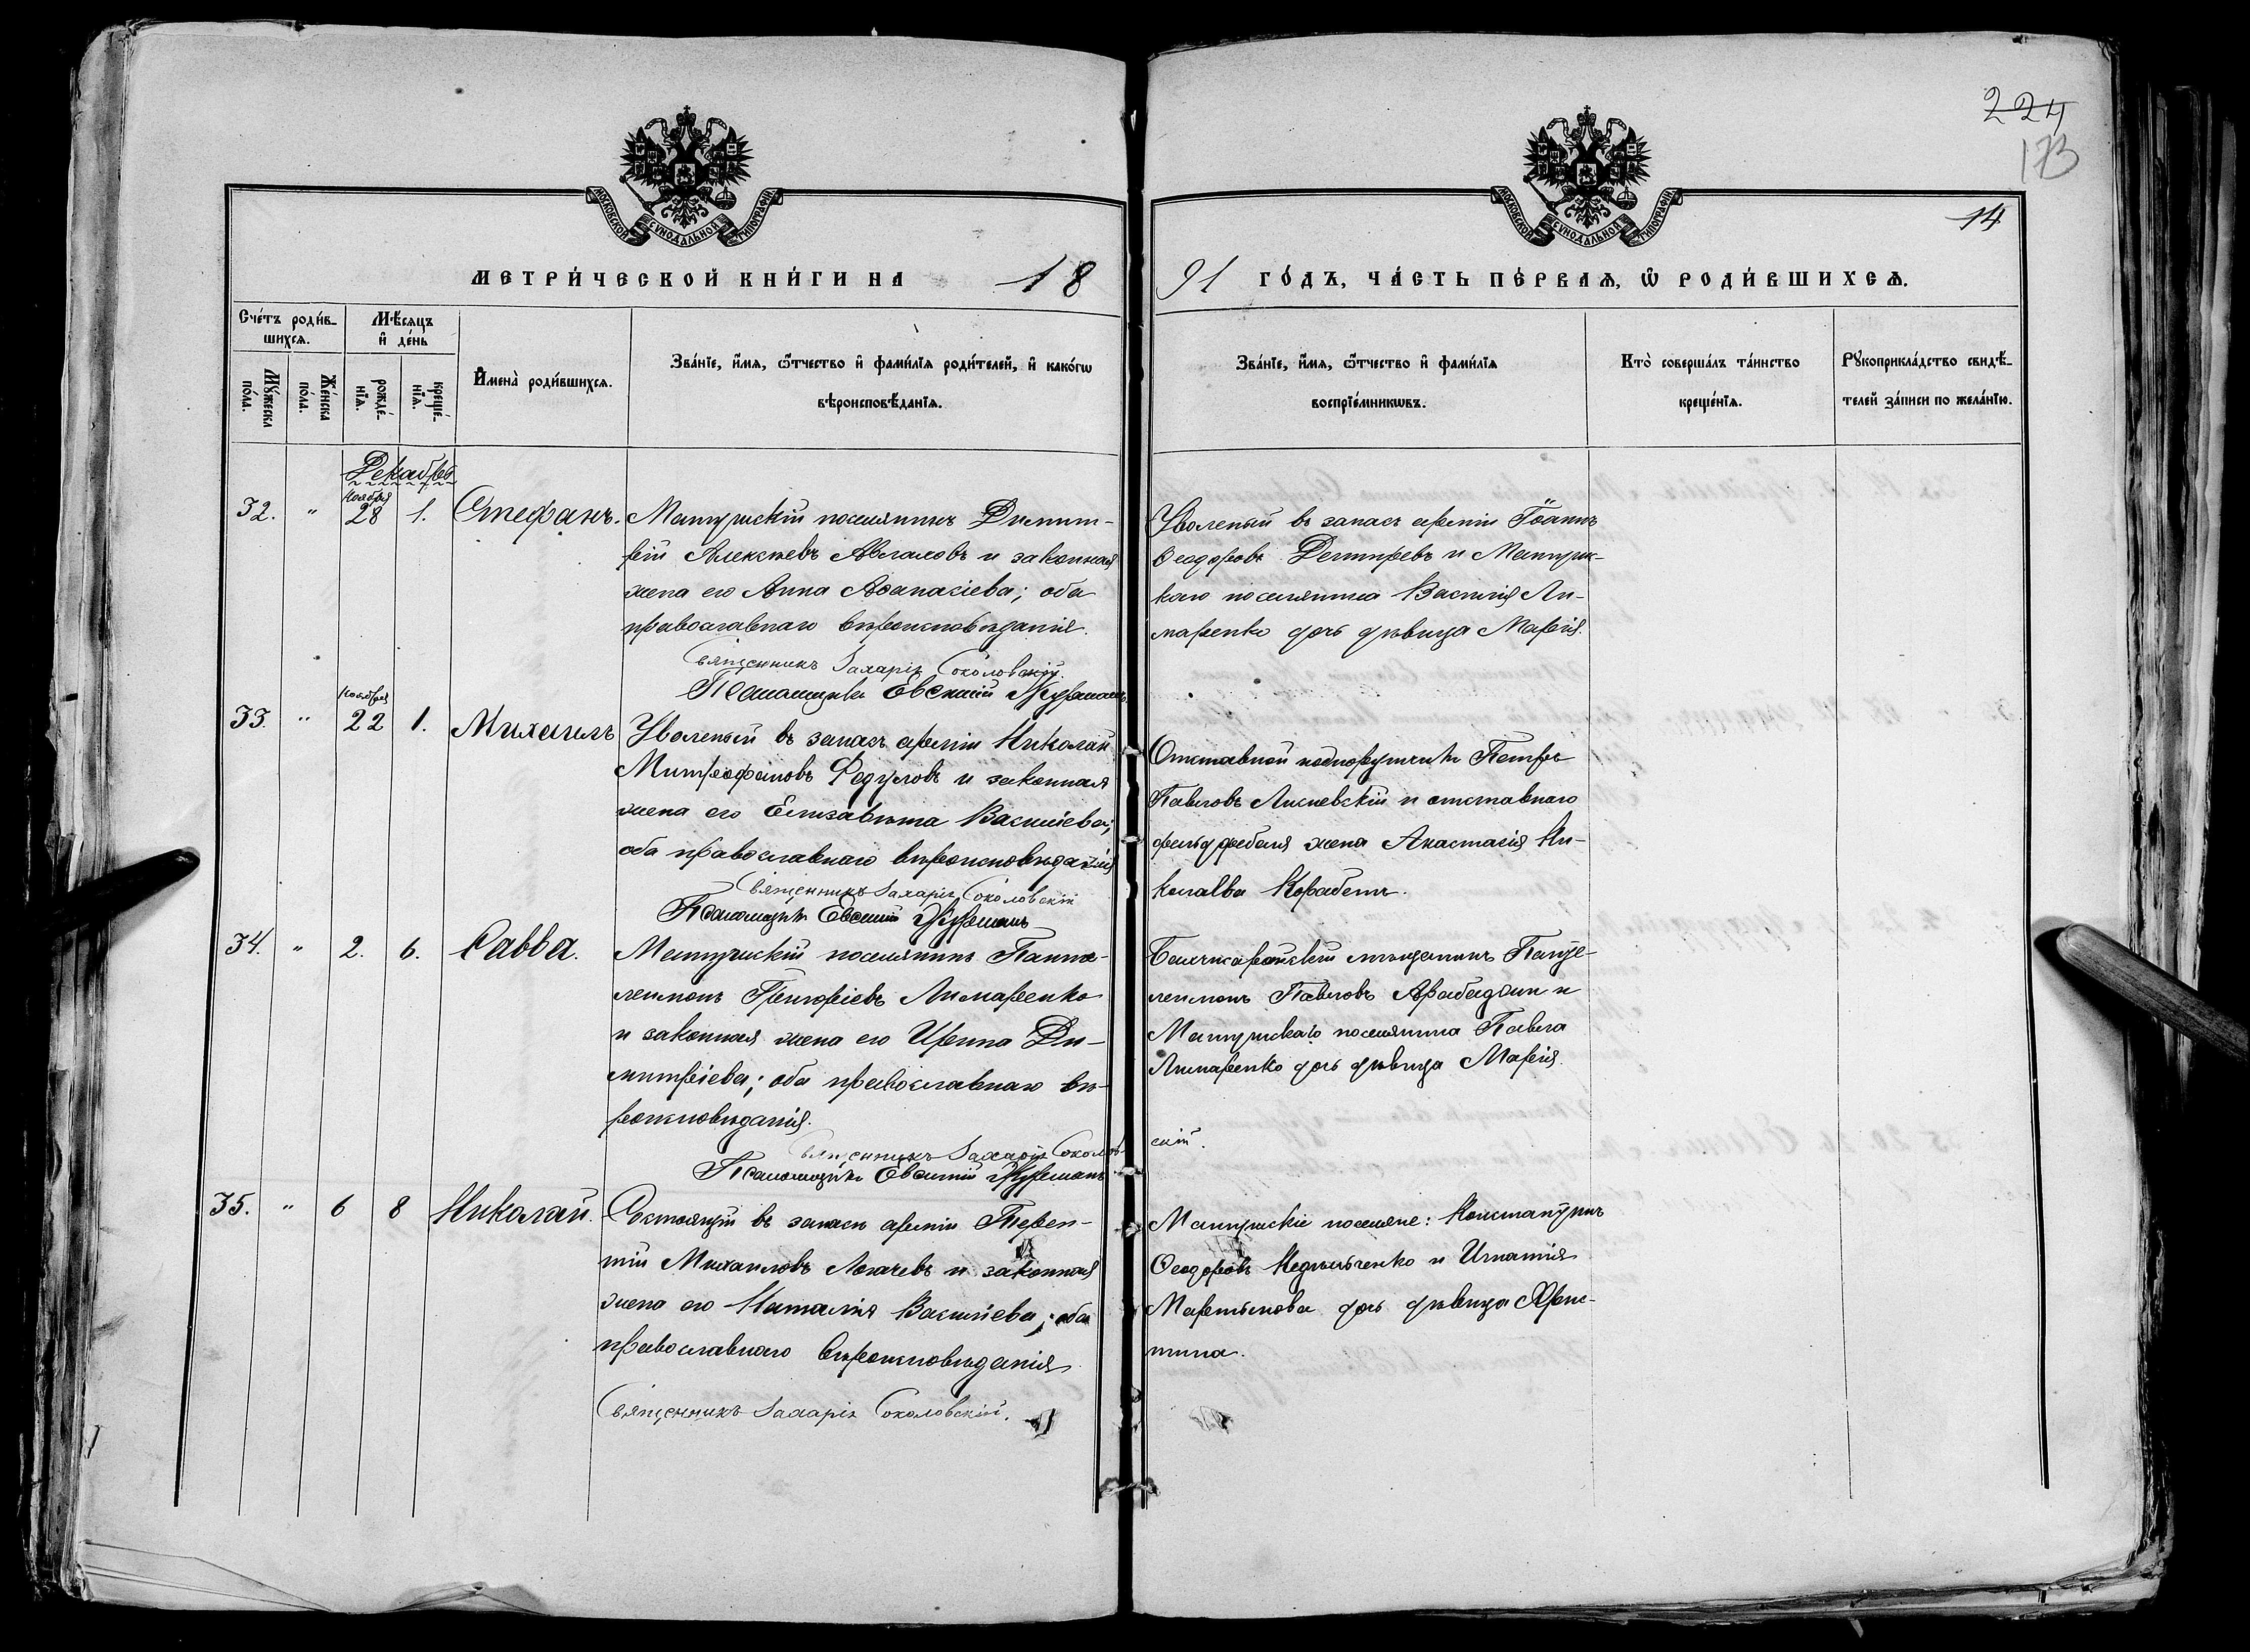 224
173
14
МОСКОВСКОЙ СѴНОДАЛЬНОЙ ТИПОГРАФІИ
МОСКОВСКОЙ СѴНОДАЛЬНОЙ ТИПОГРАФІИ
МЕТРИ́ЧЕСКОЙ КНИ́ГИ НА 18
91 ГО́ДЪ, ЧА́СТЬ ПЕ́РВАѦ, Ѡ҆ РОДИ́ВШИХСѦ.
Сче́тъ роди́в-
шихсѧ.
Мꙋ́жеска по́ла.
Же́нска по́ла.
Мѣ́сяцъ
и҆ де́нь
рожде́-
нїѧ.
креще́-
нїѧ.
И҆мена̀ роди́вшихсѧ.
Зва́нїе, и҆́мѧ, ѻ҆́тчество и҆ фами́лїѧ роди́телей, и҆ како́гѡ
вѣроисповѣ́данїѧ.
Зва́нїе, и҆́мѧ, ѻ҆́тчество и҆ фами́лїѧ
воспрїе́мникѡвъ.
Кто̀ соверша́лъ та́инство
креще́нїѧ.
Рꙋкоприкла́дство свидѣ́-
телей за́писи по жела́нїю.
Декабрь
Ноября
32. " 28 1. Стефанъ.
Мангушскій поселянинъ Димит-
рій Алексѣевъ Авгаловъ и законная
жена его Анна Аѳанасіева; оба
православнаго вѣроисповѣданія.
Священникъ Захарія Соколовскій.
Псаломщикъ Евсений
Уволеный въ запасъ арміи Іоаннъ
Ѳеодоровъ Дегтревъ и Мангуш-
скаго поселянина Василія Ли-
маренко дочь дѣвица Марія.
Ноября
33. " 22 1. Михаилъ
Уволеный въ запасъ арміи Николай
Митрофановъ Федуловъ и законная
жена его Елизавета Васильева;
оба православнаго вѣроисповѣданія
Священникъ Захарія Соколовскій
Псаломщикъ Евсений
Отставной подпоручикъ Петръ
Павловъ Лисневскій и отставнаго
фельдфебеля жена Анастасія Ни-
колаева
34. " 2. 6. Савва.
Мангушскій поселянинъ Панте-
леимонъ Григоріевъ Лимаренко
и законная жена его Ирина Ди-
митріева; оба православнаго вѣ-
роисповѣданія.
Священникъ Захарія Соколов-
скій.
Псаломщикъ Евсений
Бахчисарайскій мѣщанинъ Панте-
леимонъ Павловъ и
Мангушскаго поселянина Павла
Лимаренко дочь дѣвица Марія.
35. " 6 8 Николай.
Состоящій въ запасѣ арміи Терен-
тій Михаиловъ Логачевъ и законная
жена его Наталія Васильева; оба
православнаго вѣроисповѣданія
Священникъ Захарія Соколовскій.
Мангушскіе поселяне: Константинъ
Ѳеодоровъ и Игнатія
Мартынова дочь дѣвица Хрис-
тина.